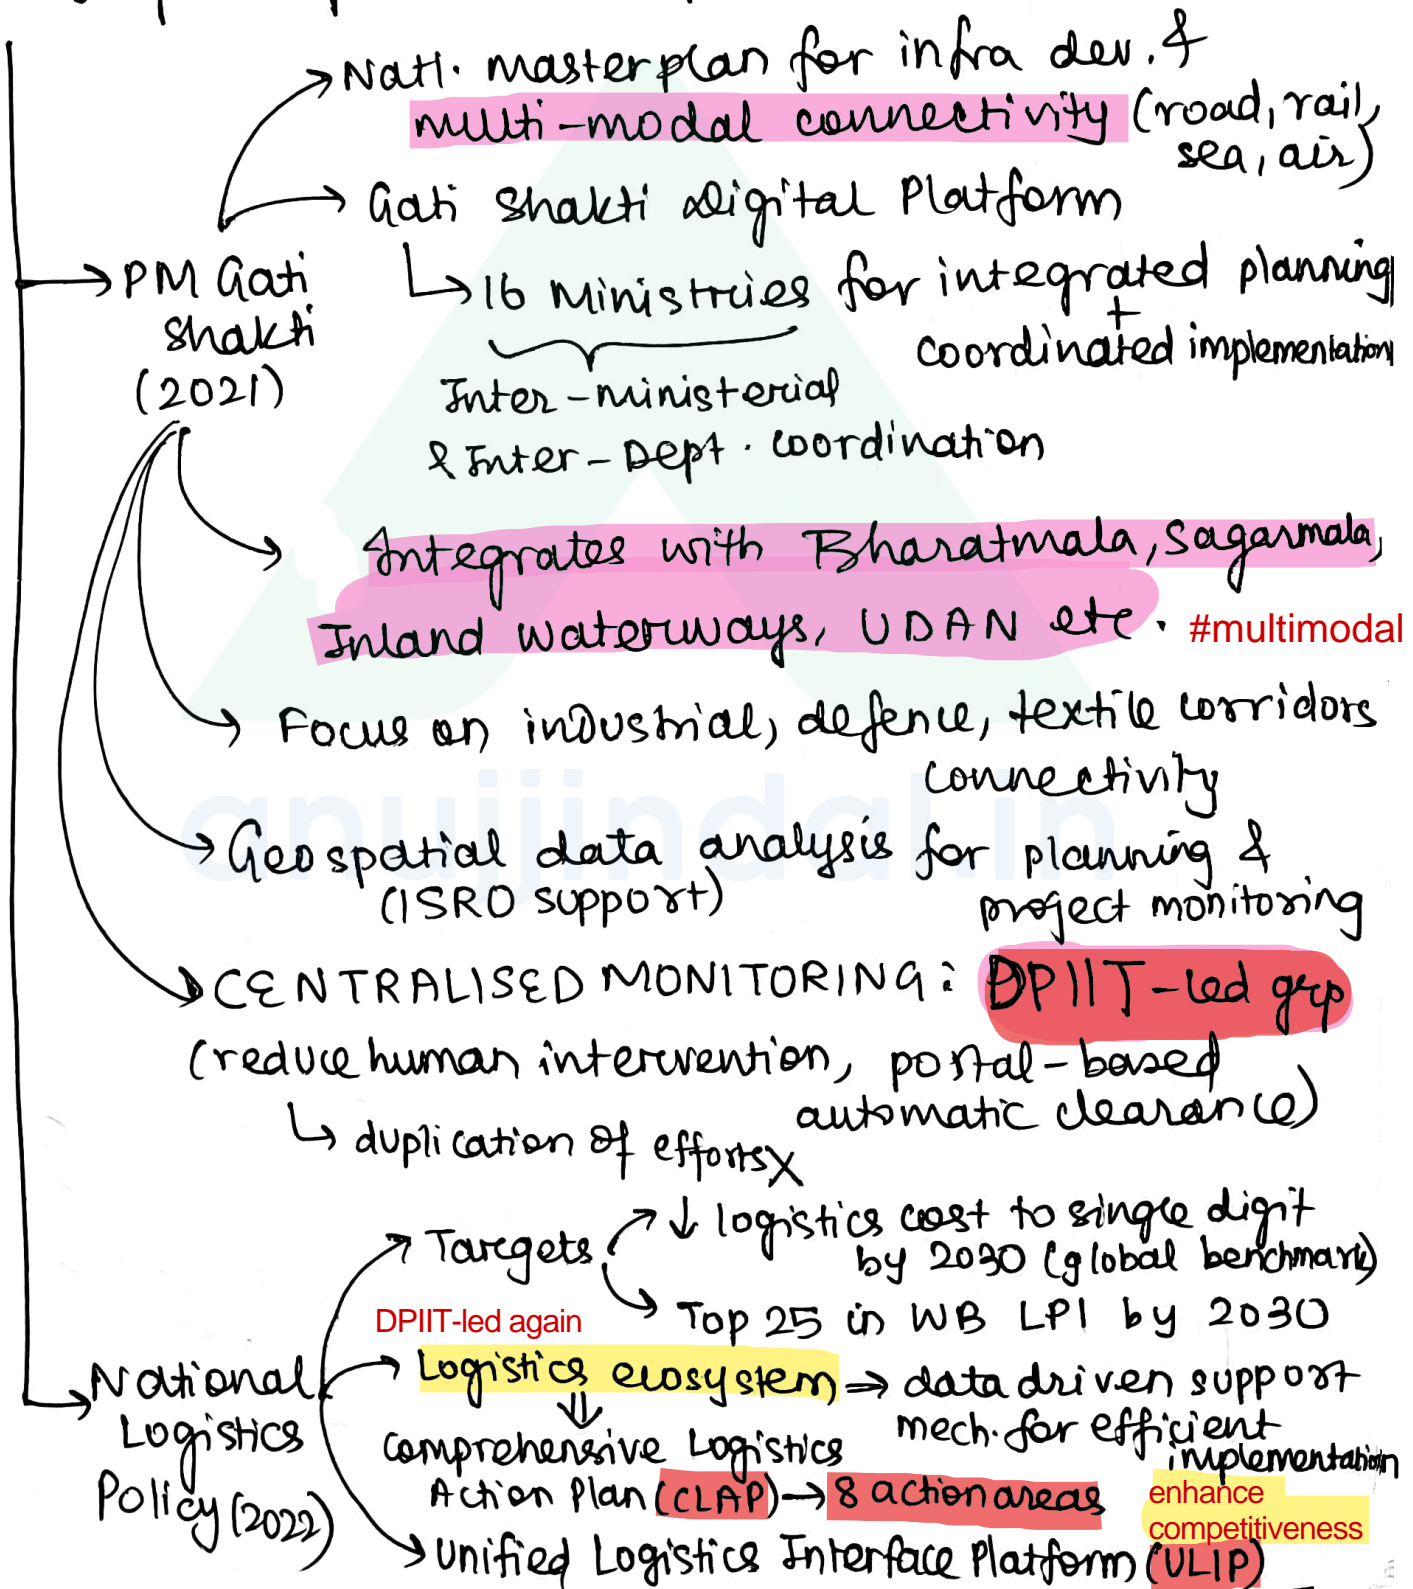 Natl. masterplan for infra dev. &
multi-modal connectivity (road, rail,
sea, air)
Gati Shakti Digital Platform
PM Gati
Shakti
(2021)
16 Ministries for integrated planning
+
coordinated implementation
Inter-ministerial
& Inter-Dept. coordination
Integrates with Bharatmala, Sagarmala,
Inland waterways, UDAN etc. #multimodal
Focus on industrial, defence, textile corridors
connectivity
anujjindal.in
Geospatial data analysis for planning &
(ISRO support) project monitoring
CENTRALISED MONITORING: DPIIT-led grp
(reduce human intervention, portal-based
automatic clearance)
duplication of efforts X
Targets ↓ logistics cost to single digit
by 2030 (global benchmark)
Top 25 in WB LPI by 2030
DPIIT-led again
National
Logistics
Policy (2022)
Logistics ecosystem ⇒ data driven support
mech. for efficient
implementation
Comprehensive Logistics
Action Plan (CLAP) → 8 action areas
enhance
competitiveness
Unified Logistics Interface Platform (ULIP)